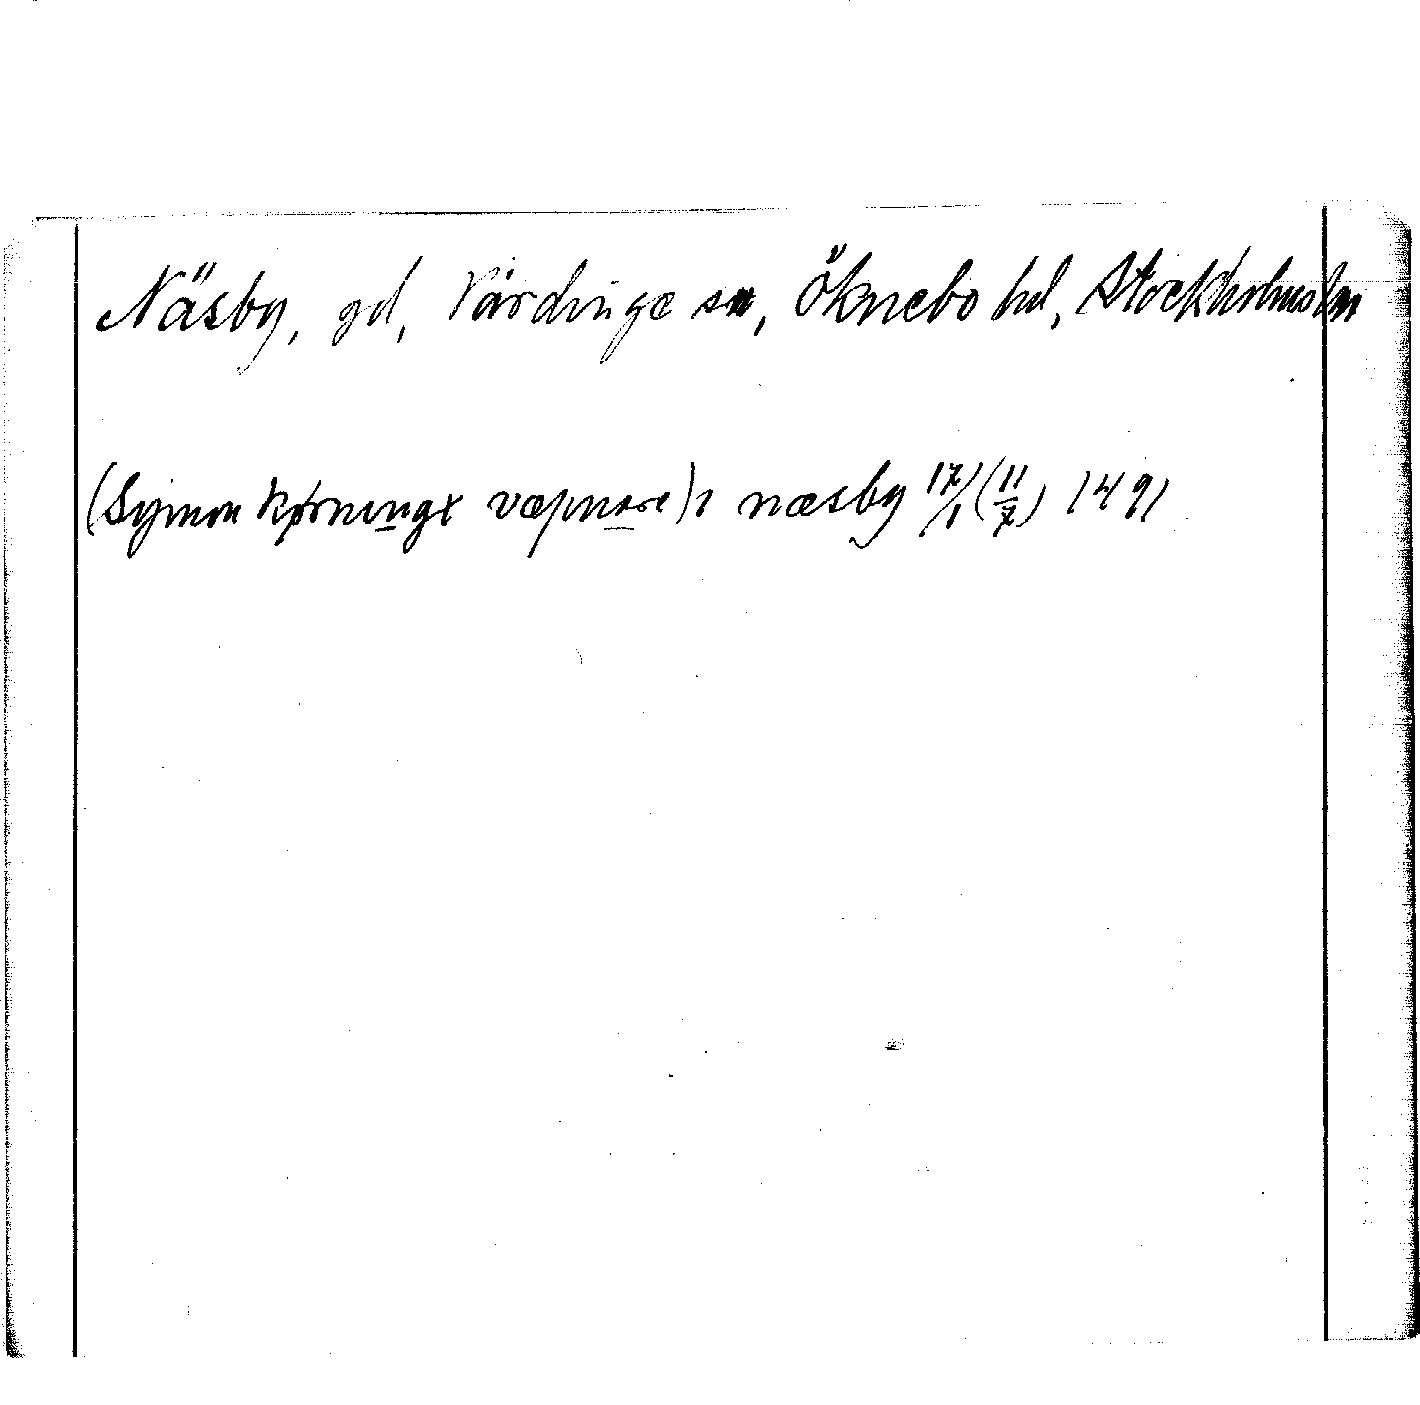 Näsby, gd, Vårdinge sn, Öknebo hd, Stockholms ln
(Symon Kørningx væpnare) i næsby 17/1 (11/7) 1491